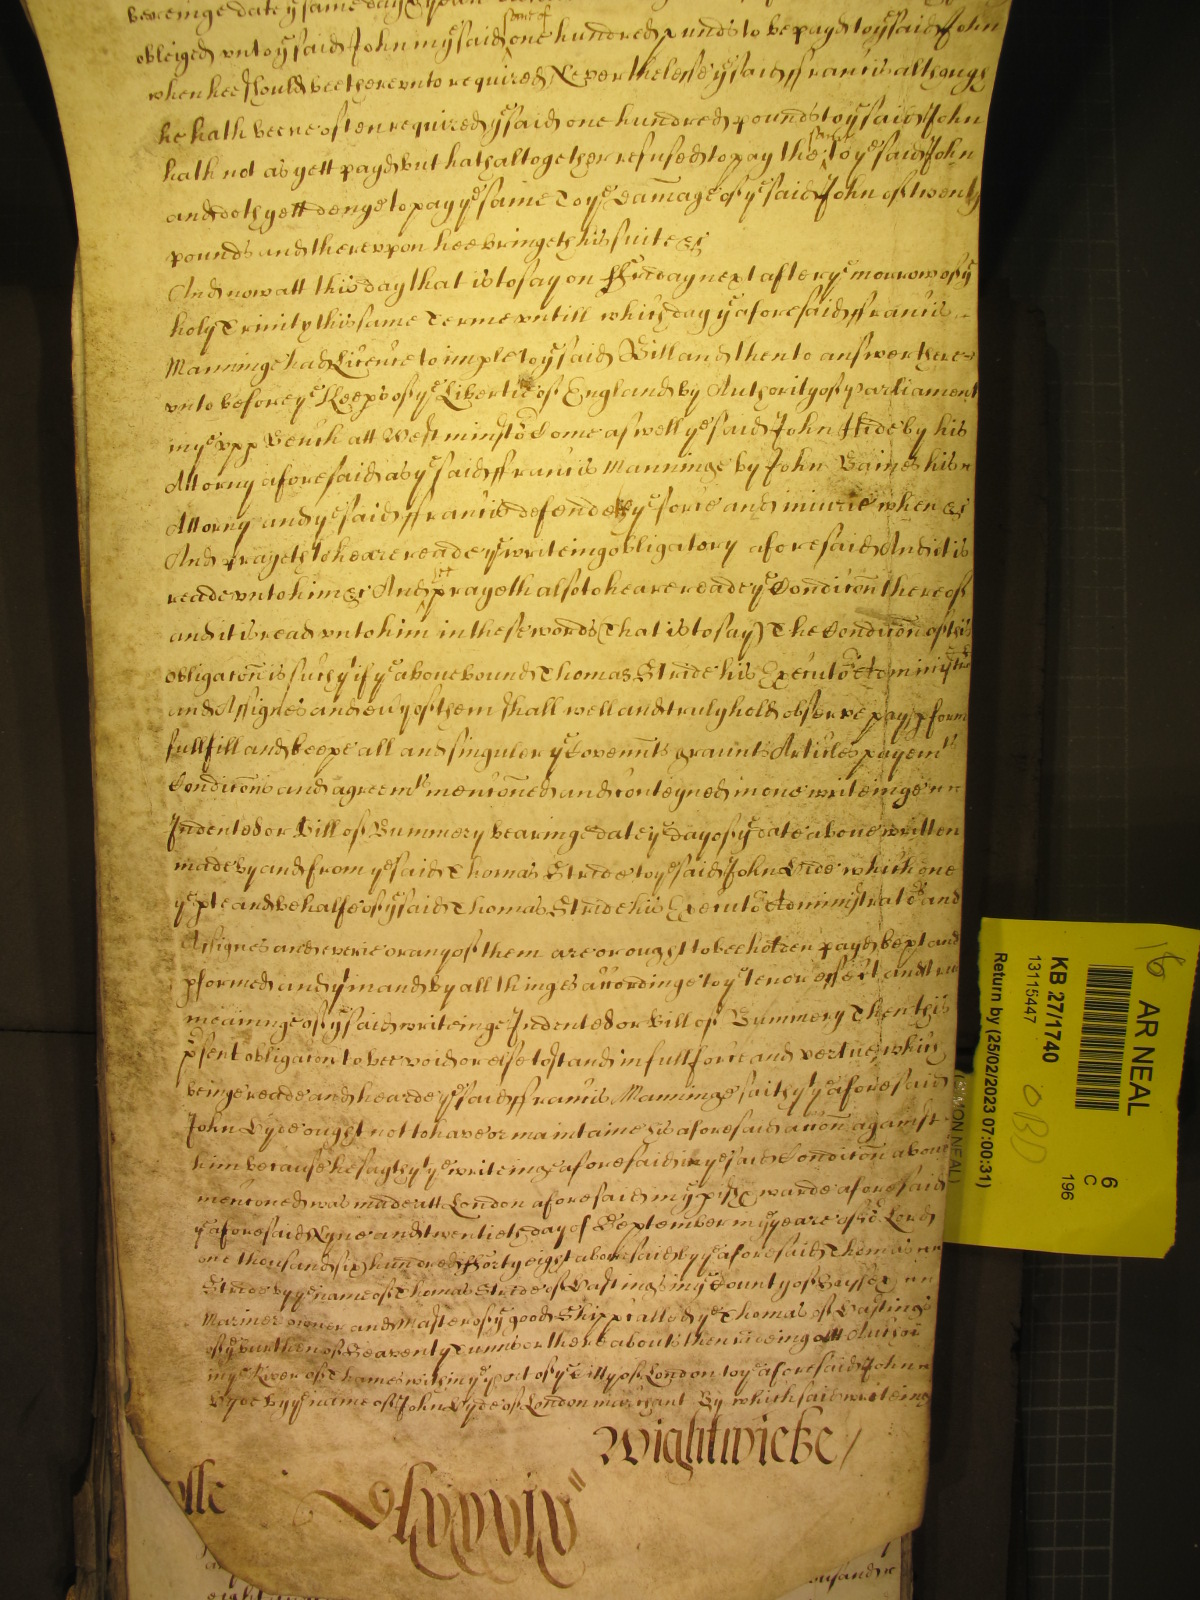 beareinge date ye same day & yeare
obleiged unto ye said John in ye said some of one hundred pounds to be payd to ye said John
when hee should bee thereunto required Neverthelesse ye said ffrancis although
he hath beene often required ye said one hundred pounds to ye said John
hath not as yett payd but hath altogether refused to pay the same to ye said John
and doth yett denye to pay ye same To ye damage of ye said John of twenty
pounds and thereupon hee bringeth his suite &c
And now att this day that is to say on ffriday next after ye morrow of ye
holy Trinity this same Terme untill which day ye aforesaid ffrancis
Manninge had Licence to imple to ye said Bill and then to answer there
unto before ye Keeps of ye Liberties of England by Authority of Parliament
in ye upp Bench att Westminster Come as well ye said John Hide by his
Attorny aforesaid as ye said ffrancis Manninge by John Baines his
Attorny and ye said ffrancis defendeth ye force and iniurie when &c
And prayeth to heare reade ye writeing obligatory aforesaid And it is
reade unto him &c And hee prayeth also to heare reade ye Condicon thereof
and it is read unto him in these words (That is to say) The Condicon of this
obligacon is such yt if ye above bound Thomas Stride his Executors Administrs
and Assignes and evy of them shall well and truly hold observe pay pforme
fullfill and keepe all and singuler ye Covennts graunts Articles payemts
Condicons and agreemts mencioned and conteyned in one writeinge
Indented or Bill of Bummery bearinge date ye day of ye date above written
made by and from ye said Thomas Stride to ye said John Hide which one
ye pte and behalfe of ye said Thomas Stride his Executors Administrators and
Assignes and everie or any of them are or ought to bee holden payd kept and
pformed and yt in and by all thinges accordinge to ye tenor effect and true
meaninge of ye said writeinge Indented or Bill of Bummery Then this
psent obligacon to bee void or else to stand in full force and vertue which
beinge reade and hearde ye said ffrancis Manninge saith yt ye aforesaid
John Hyde ought not to have or maintaine his aforesaid accon against
him because he sayth yt ye writeinge aforesaid in ye said Condicon above
mencioned was made att London aforesaid in ye pish & warde aforesaid
ye aforesaid Nyne and twentieth day of September in ye yeare of or Lord
one thousand six hundred ffforty eight abovesaid by ye aforesaid Thomas
Stride by ye name of Thomas Stride of Hastings in ye County of Sussex
Mariner owner and Master of ye good Shipp called ye Thomas of Hastings
of ye burthen of Seaventy Tunns or there abouts then rideing att Anchor
in ye River of Thames within ye port of ye Citty of London to ye aforesaid John
Hyde by ye name of John Hyde of London marchant By which said writeing
Wightwicke
lle
16
AR NEAL
KB 27/1740
13115447
OBD
6
C
196
Return by (25/02/2023 07:00:31)
(SIMON NEAL)